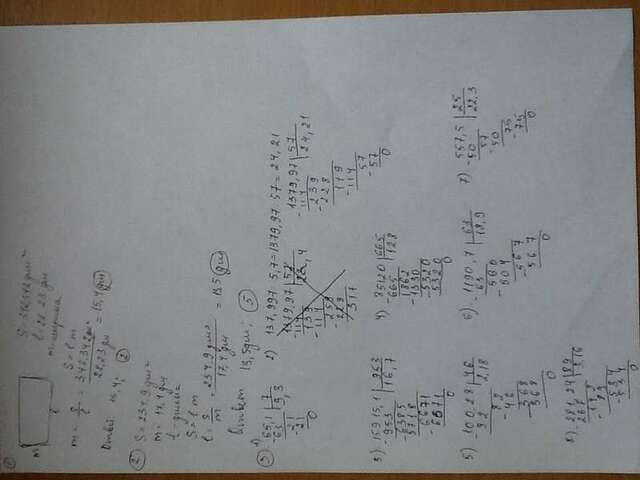 ①
m
l
S = 342,342 дм²
l = 28,23 дм
m = ширина
S = l m
m = S/l = 342,342 дм²/28,23 дм = 15,4 дм
Ответ 15,4; ②
②
S = 234,9 дм²
m = 17,4 дм
l - длина
S = l m
l = S/m = 234,9 дм²/17,4 дм = 13,5 дм
Ответ 13,5 дм; ⑤
③ 1) 65,1 7
63 9,3
21
21
0
2) 137,997 5,7 = 1379,97 57 = 24,21
1379,97 57
114
239
-228
119
-114
57
-57
0
24,21
3) 15915,1 953
-953 16,7
6385
5718
6671
-6671
0
4) 85120 665
-665 128
1862
-1330
5320
5320
0
5) 100,28 46
92 2,18
82
-46
368
-368
0
6) 1190,7 63
-63 18,9
560
-504
567
567
0
7) 557,5 25
-50 22,3
57
-50
75
75
0
8) 281,24 89
267 3,16
142
-89
534
-534
0